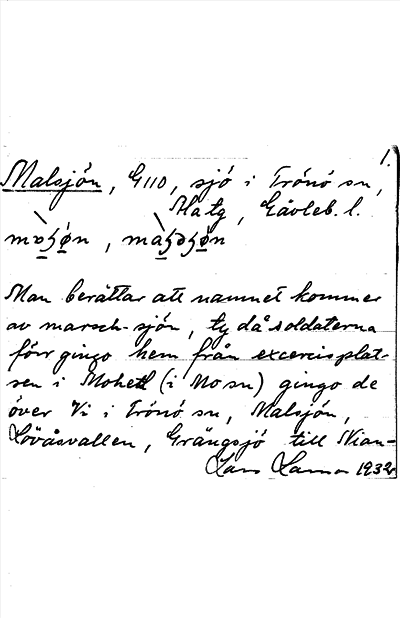 1.
Malsjön, G110, sjö i Trönö sn,
Ala tg, Gävleb. l.
Man berättar att namnet kommer
av marsch-sjön, ty då soldaterna
förr gingo hem från excercisplat-
sen i Mohed (i Mo sn) gingo de
över Vi i Trönö sn, Malsjön,
Lövåsvallen, Grängsjö till Nian-
Lars 1932